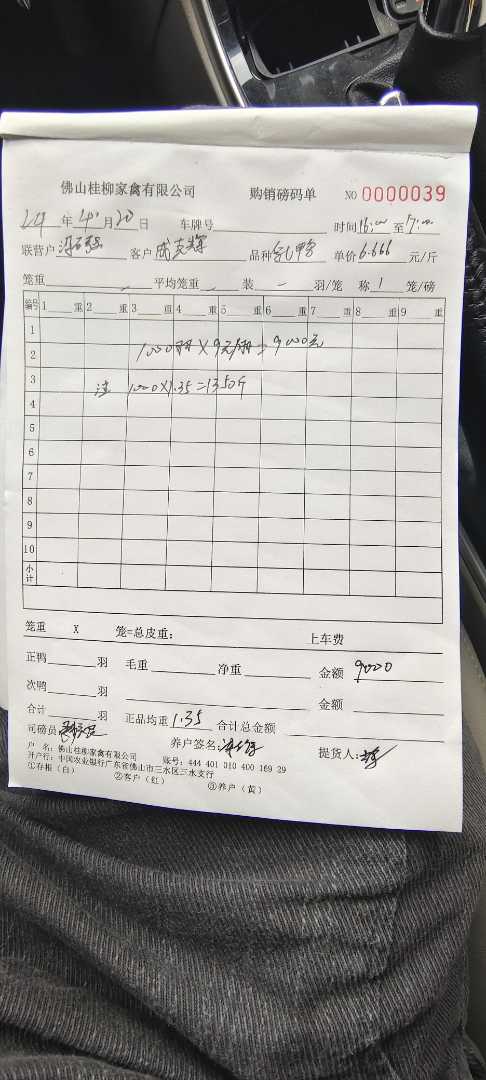 佛山桂柳家禽有限公司 购销磅码单 NO 0000039
24年4月20日 车牌号 时间16:00至17:00
联营户 客户 成克辉 品种 乳鸭 单价6.666元/斤
笼重 平均笼重 装 - 羽/笼 称 1 笼/磅
编号 1 重 2 重 3 重 4 重 5 重 6 重 7 重 8 重 9 重
1
2 1000羽×9元/羽=9000元
3 注 1000×1.35=1350斤
4
5
6
7
8
9
10
小计
笼重 X 笼=总皮重： 上车费
正鸭 羽 毛重 净重 金额 9000
次鸭 羽 金额
合计 羽 正品均重 1.35 合计总金额
司磅员 养户签名： 提货人：
户 名：佛山桂柳家禽有限公司 账号：444 401 010 400 169 29
开户行：中国农业银行广东省佛山市三水区三水支行
①存根（白） ②客户（红） ③养户（黄）